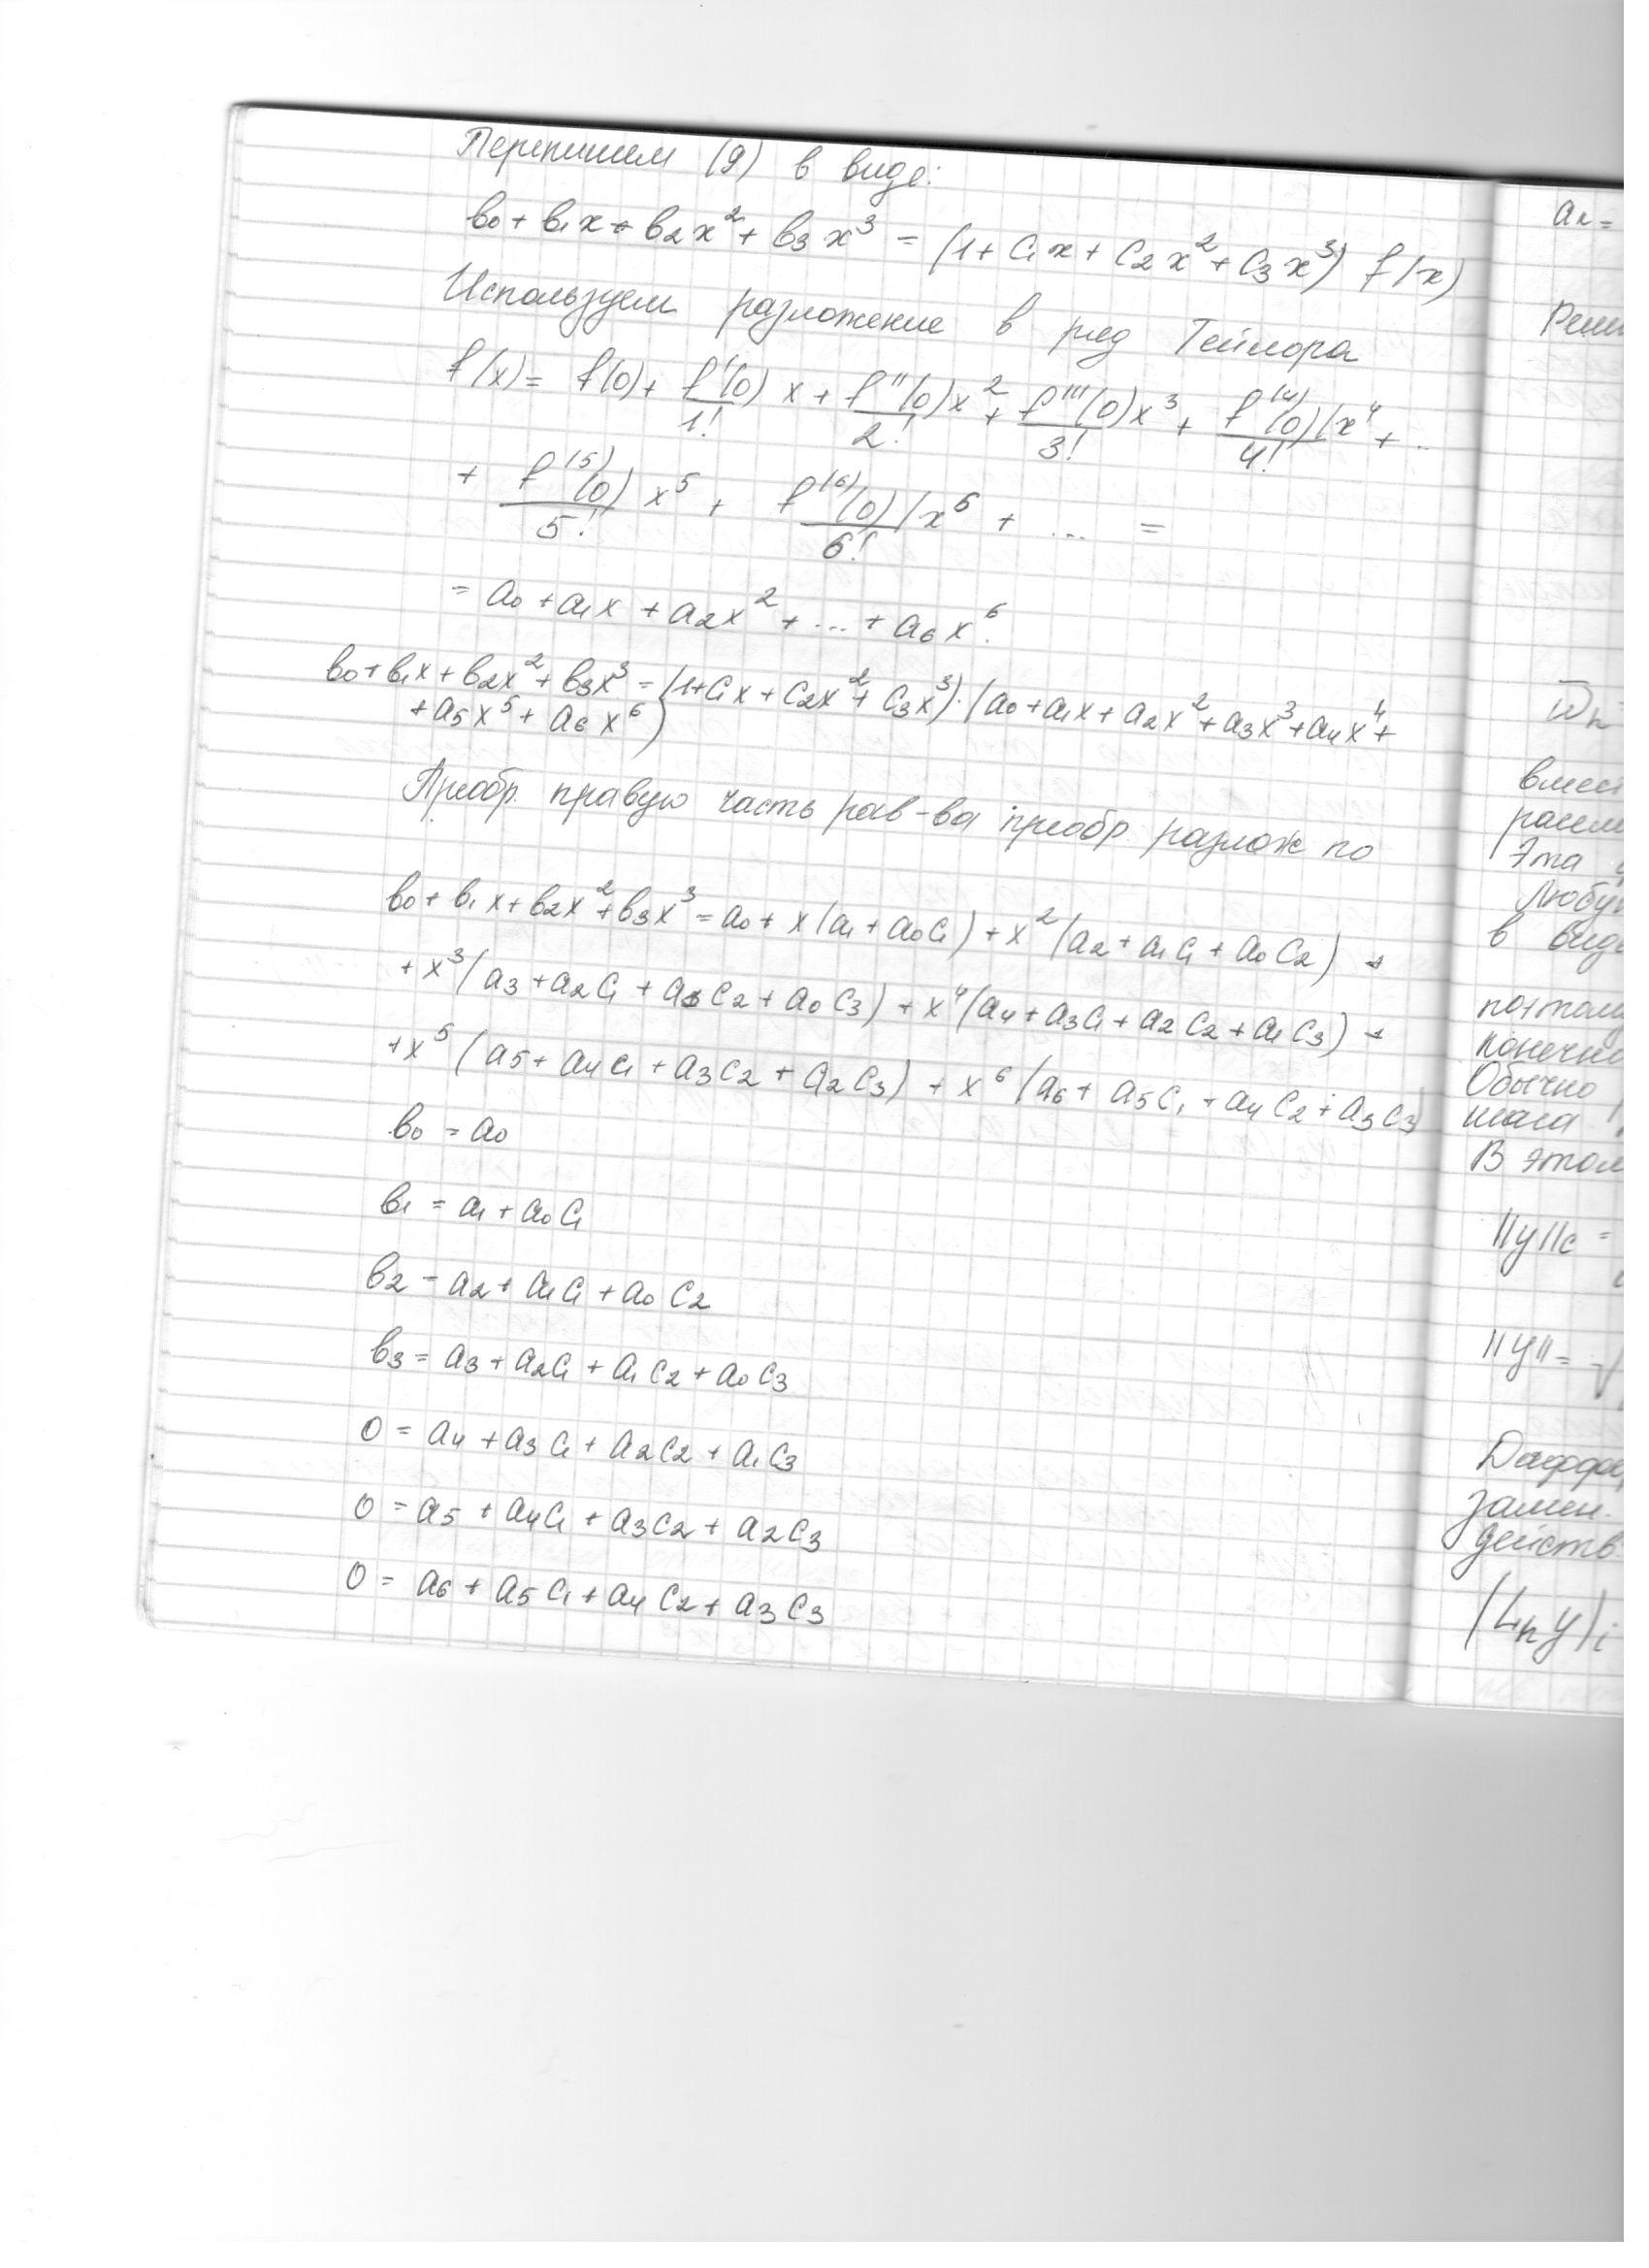 Перепишем (9) в виде:
b₀ + b₁x + b₂x² + b₃x³ = (1 + c₁x + c₂x² + c₃x³) f(x)
Используем разложение в ряд Тейлора
f(x) = f(0) + f'(0)/1! x + f''(0)/2! x² + f'''(0)/3! x³ + f⁽⁴⁾(0)/4! x⁴ + ..
+ f⁽⁵⁾(0)/5! x⁵ + f⁽⁶⁾(0)/6! x⁶ + ... =
= a₀ + a₁x + a₂x² + ... + a₆x⁶.
b₀ + b₁x + b₂x² + b₃x³ = (1 + c₁x + c₂x² + c₃x³)·(a₀ + a₁x + a₂x² + a₃x³ + a₄x⁴ +
+ a₅x⁵ + a₆x⁶)
Преобр. правую часть рав-ва преобр. разлож по
b₀ + b₁x + b₂x² + b₃x³ = a₀ + x(a₁ + a₀c₁) + x²(a₂ + a₁c₁ + a₀c₂) +
+ x³(a₃ + a₂c₁ + a₁c₂ + a₀c₃) + x⁴(a₄ + a₃c₁ + a₂c₂ + a₁c₃) +
+ x⁵(a₅ + a₄c₁ + a₃c₂ + a₂c₃) + x⁶(a₆ + a₅c₁ + a₄c₂ + a₃c₃)
b₀ = a₀
b₁ = a₁ + a₀c₁
b₂ = a₂ + a₁c₁ + a₀c₂
b₃ = a₃ + a₂c₁ + a₁c₂ + a₀c₃
0 = a₄ + a₃c₁ + a₂c₂ + a₁c₃
0 = a₅ + a₄c₁ + a₃c₂ + a₂c₃
0 = a₆ + a₅c₁ + a₄c₂ + a₃c₃
Эта
в виде
Обычно
шага
В этом
||y||c =
||y|| =
замен.
действ
(Lₕy)i